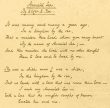 Annabel Lee.
By Edgar A. Poe.
It was many and many a year ago,
In a kingdom by the sea,
That a maiden there lived whom you may know
By the name of Annabel Lee;
And this maiden she lived with no other thought
Than to love and be loved by me.
I was a child and she was a child,
In this kingdom by the sea,
But we loved with a love that was more than love —
I and my Annabel Lee —
With a love that the winged seraphs of heaven
Coveted her and me.